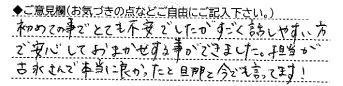 ◆ご意見欄(お気づきの点などご自由にご記入下さい。)
初めての事でとても不安でしたがすごく話しやすい方
で安心しておまかせする事ができました。担当が
吉永さんで本当に良かったと旦那と今でも言ってます!